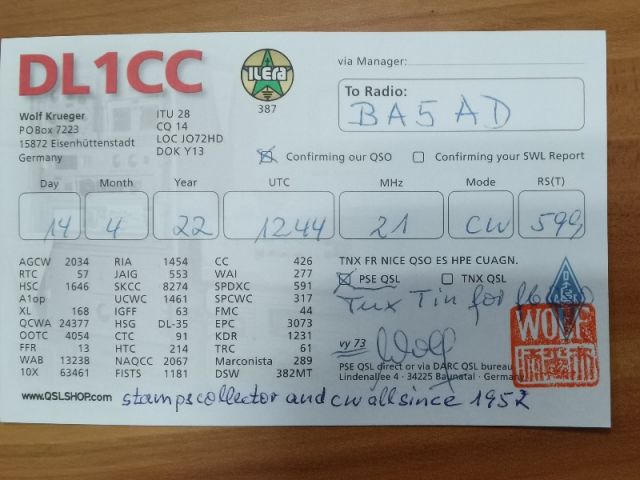 DL1CC
ILERA
387
via Manager:
To Radio:
BA5AD
Wolf Krueger
POBox 7223
15872 Eisenhüttenstadt
Germany
ITU 28
CQ 14
LOC JO72HD
DOK Y13
Confirming our QSO Confirming your SWL Report
Day Month Year UTC MHz Mode RS(T)
14 4 22 1244 21 CW 599
AGCW 2034 RIA 1454 CC 426
RTC 57 JAIG 553 WAI 277
HSC 1646 SKCC 8274 SPDXC 591
A1op UCWC 1461 SPCWC 317
XL 168 IGFF 63 FMC 44
QCWA 24377 HSG DL-35 EPC 3073
OOTC 4054 CTC 91 KDR 1231
FFR 13 HTC 214 TRC 61
WAB 13238 NAQCC 2067 Marconista 289
10X 63461 FISTS 1181 DSW 382MT
TNX FR NICE QSO ES HPE CUAGN.
PSE QSL TNX QSL
Tnx Tin for
WOLF
vy 73 Wolf
PSE QSL direct or via DARC QSL bureau
Lindenallee 4 · 34225 Baunatal · Germany
www.QSLSHOP.com
stampscollector and cw all since 1952